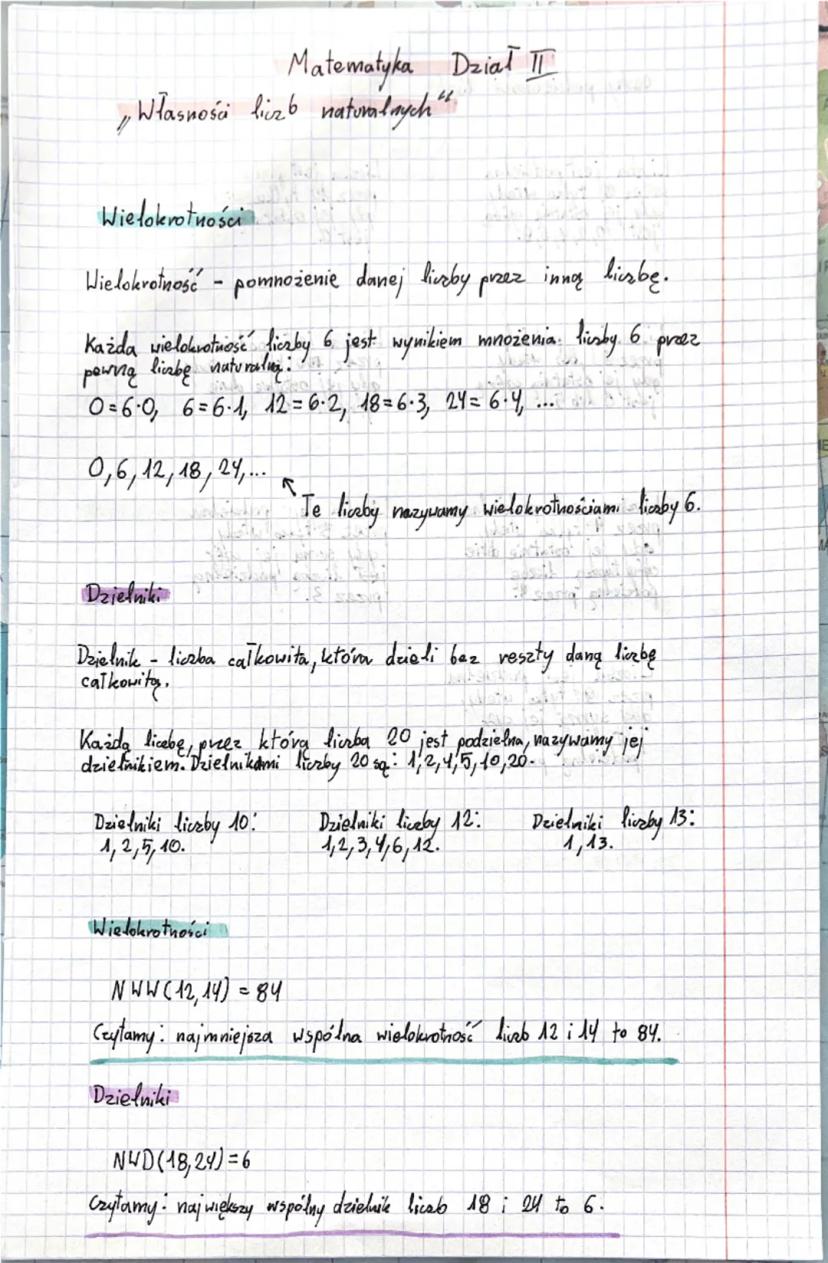 Matematyka Dział II
„Własności liczb naturalnych"
Wielokrotności
Wielokrotność - pomnożenie danej liczby przez inną liczbę.
Każda wielokrotność liczby 6 jest wynikiem mnożenia liczby 6 przez
pewną liczbę naturalną:
0=6·0, 6=6·1, 12=6·2, 18=6·3, 24=6·4, ...
0, 6, 12, 18, 24,...
Te liczby nazywamy wielokrotnościami liczby 6.
Dzielniki
Dzielnik - liczba całkowita, która dzieli bez reszty daną liczbę
całkowitą.
Każdą liczbę, przez którą liczba 20 jest podzielna, nazywamy jej
dzielnikiem. Dzielnikami liczby 20 są: 1, 2, 4, 5, 10, 20.
Dzielniki liczby 10: Dzielniki liczby 12: Dzielniki liczby 13:
1, 2, 5, 10. 1, 2, 3, 4, 6, 12. 1, 13.
Wielokrotności
NWW(12,14) = 84
Czytamy: najmniejsza wspólna wielokrotność liczb 12 i 14 to 84.
Dzielniki
NWD(18,24)=6
Czytamy: największy wspólny dzielnik liczb 18 i 24 to 6.